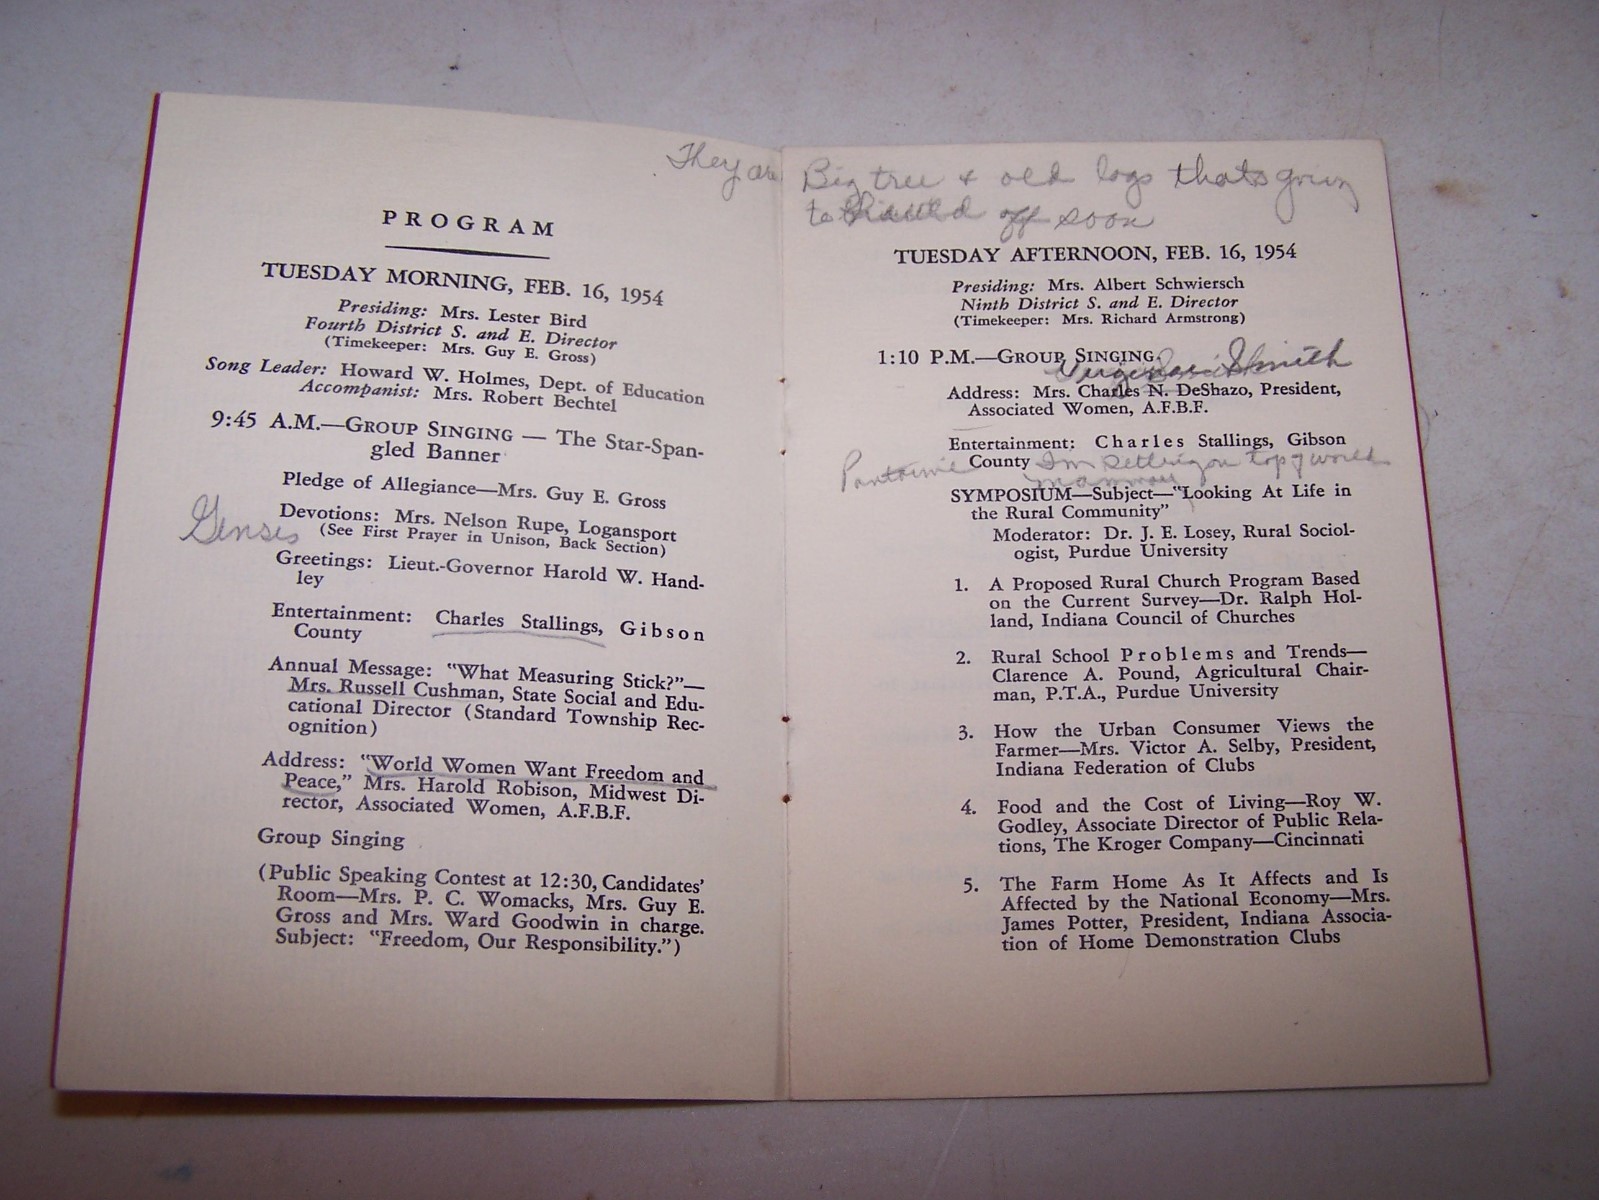 They are
PROGRAM
TUESDAY MORNING, FEB. 16, 1954
Presiding: Mrs. Lester Bird
Fourth District S. and E. Director
(Timekeeper: Mrs. Guy E. Gross)
Song Leader: Howard W. Holmes, Dept. of Education
Accompanist: Mrs. Robert Bechtel
9:45 A.M.—GROUP SINGING — The Star-Span-
gled Banner
Pledge of Allegiance—Mrs. Guy E. Gross
Devotions: Mrs. Nelson Rupe, Logansport
Genses
(See First Prayer in Unison, Back Section)
Greetings: Lieut.-Governor Harold W. Hand-
ley
Entertainment: Charles Stallings, Gibson
County
Annual Message: "What Measuring Stick?"—
Mrs. Russell Cushman, State Social and Edu-
cational Director (Standard Township Rec-
ognition)
Address: "World Women Want Freedom and
Peace," Mrs. Harold Robison, Midwest Di-
rector, Associated Women, A.F.B.F.
Group Singing
(Public Speaking Contest at 12:30, Candidates'
Room—Mrs. P. C. Womacks, Mrs. Guy E.
Gross and Mrs. Ward Goodwin in charge.
Subject: "Freedom, Our Responsibility.")
Big tree & old logs thats going
to off soon
TUESDAY AFTERNOON, FEB. 16, 1954
Presiding: Mrs. Albert Schwiersch
Ninth District S. and E. Director
(Timekeeper: Mrs. Richard Armstrong)
1:10 P.M.—GROUP SINGING
Smith
Address: Mrs. Charles N. DeShazo, President,
Associated Women, A.F.B.F.
Entertainment: Charles Stallings, Gibson
County
Im setting on top of world
mammy
SYMPOSIUM—Subject—"Looking At Life in
the Rural Community"
Moderator: Dr. J. E. Losey, Rural Sociol-
ogist, Purdue University
1. A Proposed Rural Church Program Based
on the Current Survey—Dr. Ralph Hol-
land, Indiana Council of Churches
2. Rural School Problems and Trends—
Clarence A. Pound, Agricultural Chair-
man, P.T.A., Purdue University
3. How the Urban Consumer Views the
Farmer—Mrs. Victor A. Selby, President,
Indiana Federation of Clubs
4. Food and the Cost of Living—Roy W.
Godley, Associate Director of Public Rela-
tions, The Kroger Company—Cincinnati
5. The Farm Home As It Affects and Is
Affected by the National Economy—Mrs.
James Potter, President, Indiana Associa-
tion of Home Demonstration Clubs